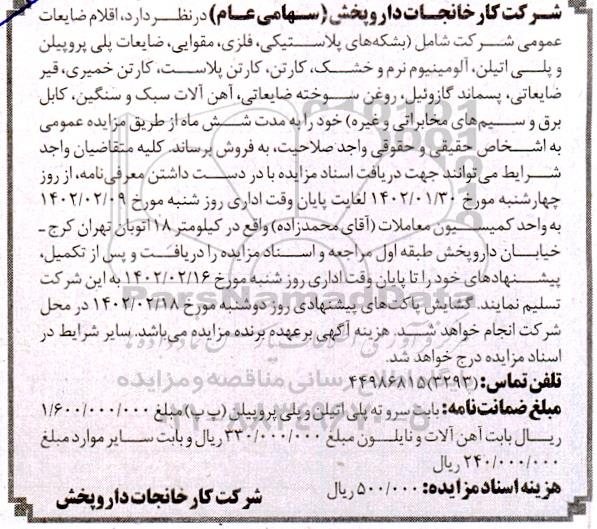 شرکت کارخانجات داروپخش (سهامی عام) در نظر دارد، اقلام ضایعات
عمومی شرکت شامل (بشکه‌های پلاستیکی، فلزی، مقوایی، ضایعات پلی پروپیلن
و پلی اتیلن، آلومینیوم نرم و خشک، کارتن، کارتن پلاست، کارتن خمیری، قیر
ضایعاتی، پسماند گازوئیل، روغن سوخته ضایعاتی، آهن آلات سبک و سنگین، کابل
برق و سیم‌های مخابراتی و غیره) خود را به مدت شش ماه از طریق مزایده عمومی
به اشخاص حقیقی و حقوقی واجد صلاحیت، به فروش برساند. کلیه متقاضیان واجد
شرایط می‌توانند جهت دریافت اسناد مزایده با در دست داشتن معرفی‌نامه، از روز
چهارشنبه مورخ ۱۴۰۲/۰۱/۳۰ لغایت پایان وقت اداری روز شنبه مورخ ۱۴۰۲/۰۲/۰۹
به واحد کمیسیون معاملات (آقای محمدزاده) واقع در کیلومتر ۱۸ اتوبان تهران کرج -
خیابان داروپخش طبقه اول مراجعه و اسناد مزایده را دریافت و پس از تکمیل،
پیشنهادهای خود را تا پایان وقت اداری روز شنبه مورخ ۱۴۰۲/۰۲/۱۶ به این شرکت
تسلیم نمایند. گشایش پاکت‌های پیشنهادی روز دوشنبه مورخ ۱۴۰۲/۰۲/۱۸ در محل
شرکت انجام خواهد شد. هزینه آگهی بر عهده برنده مزایده می‌باشد. سایر شرایط در
اسناد مزایده درج خواهد شد.
تلفن تماس: (۳۲۹۳)۴۴۹۸۶۸۱۵
مبلغ ضمانت‌نامه: بابت سر و ته پلی اتیلن و پلی پروپیلن (پ پ) مبلغ ۱/۶۰۰/۰۰۰/۰۰۰
ریال بابت آهن آلات و نایلون مبلغ ۳۳۰/۰۰۰/۰۰۰ ریال و بابت سایر موارد مبلغ
۲۴۰/۰۰۰/۰۰۰ ریال
هزینه اسناد مزایده: ۵۰۰/۰۰۰ ریال
شرکت کارخانجات داروپخش
ParsNamadData